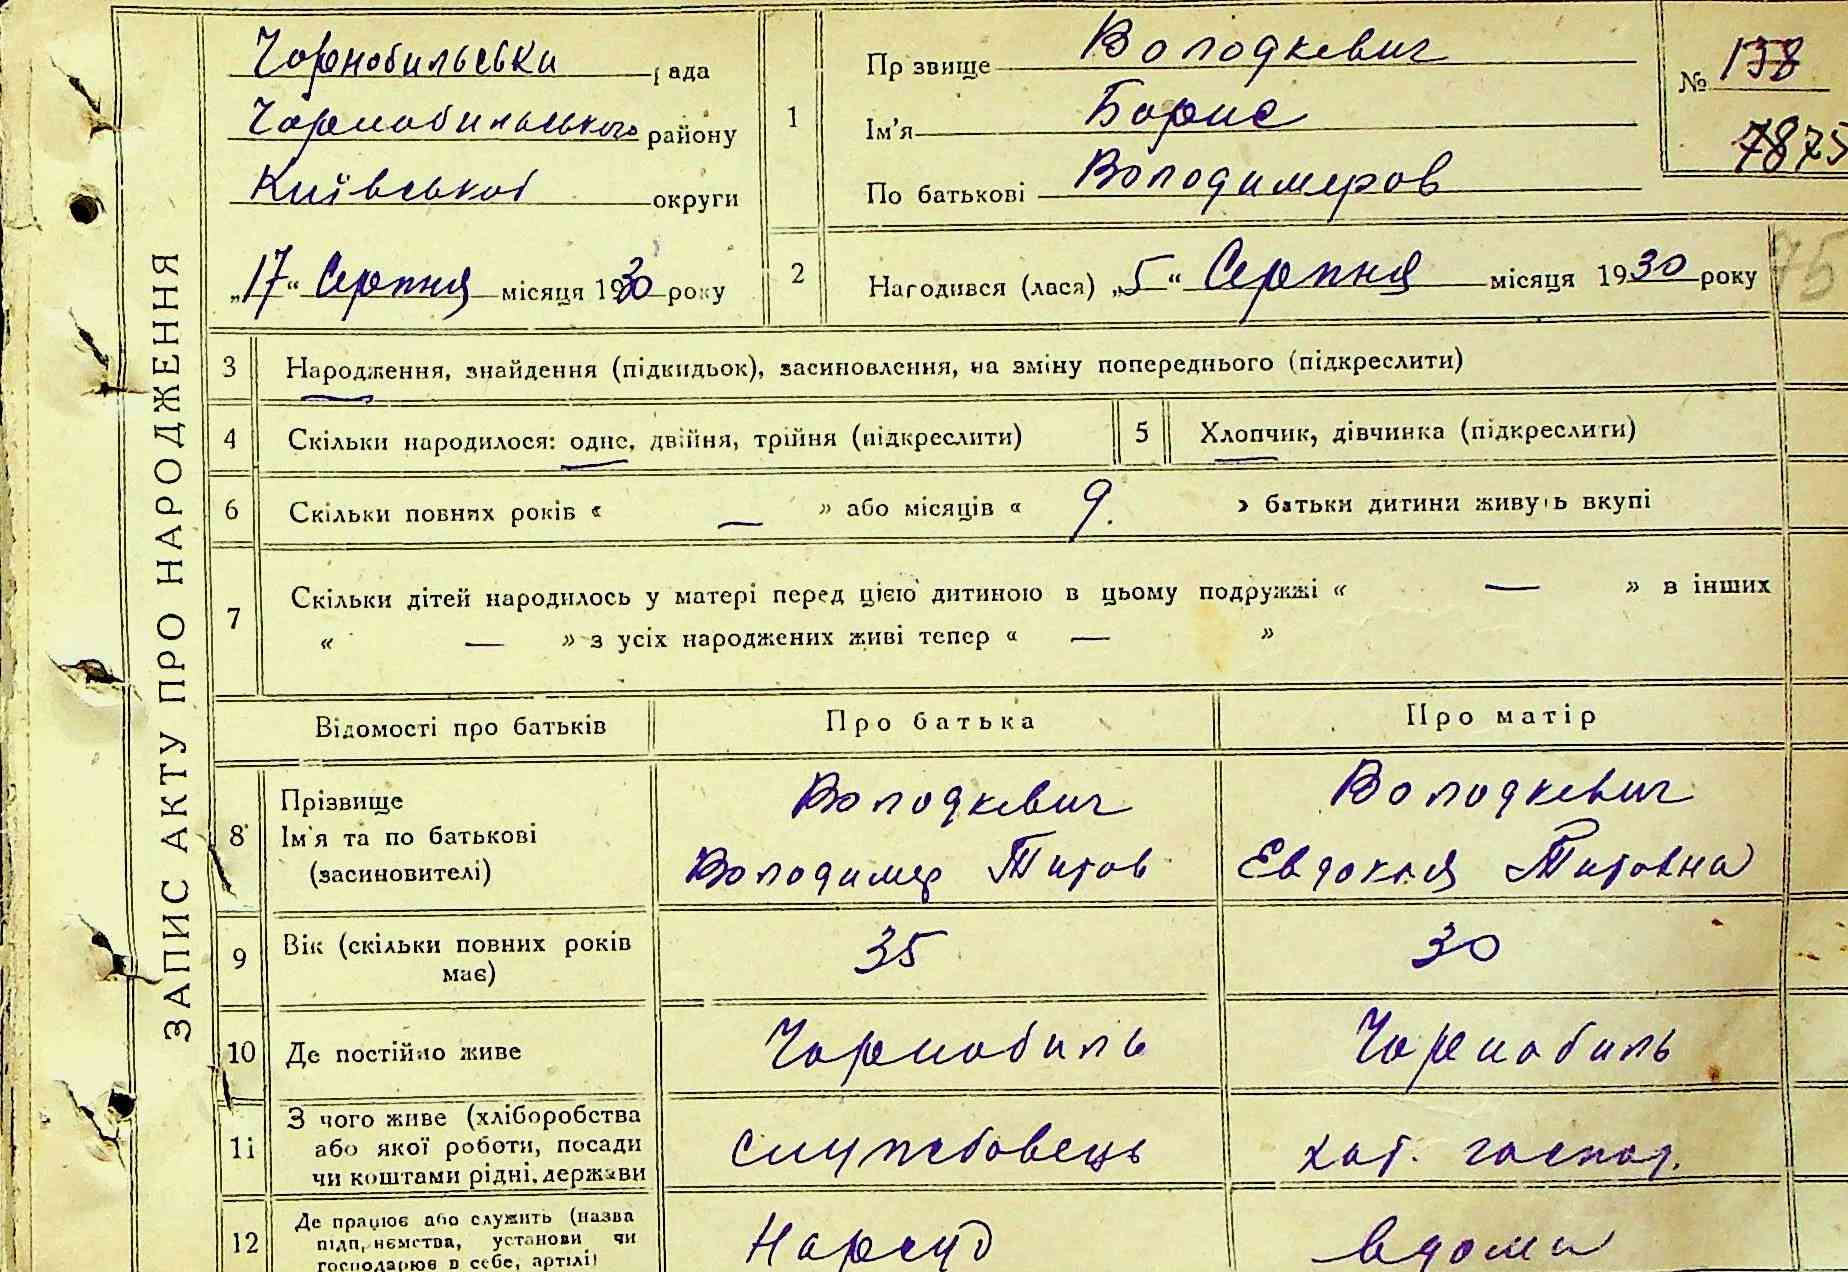 ЗАПИС АКТУ ПРО НАРОДЖЕННЯ
Чорнобильська рада
Чорнобильського району
Київської округи
„17“ Серпня місяця 1930 року
1
Прізвище Володкевич
Ім'я Борис
По батькові Володимиров
№ 138
7873
2
Народився (лася) „5“ Серпня місяця 1930 року
75
3 Народження, знайдення (підкидьок), засиновлення, на зміну попереднього (підкреслити)
4 Скільки народилося: одне, двійня, трійня (підкреслити)
5 Хлопчик, дівчинка (підкреслити)
6 Скільки повних років « — » або місяців « 9. » батьки дитини живуть вкупі
7 Скільки дітей народилось у матері перед цією дитиною в цьому подружжі « — » в інших
« — » з усіх народжених живі тепер « — »
Відомості про батьків Про батька Про матір
8 Прізвище Володкевич Володкевич
Ім'я та по батькові Володимир Титов Евдокія Титовна
(засиновителі)
9 Вік (скільки повних років 35 30
має)
10 Де постійно живе Чорнобиль Чорнобиль
11 З чого живе (хліборобства
або якої роботи, посади службовець хат. господ.
чи коштами рідні, держави
12 Де працює або служить (назва
підприємства, установи чи Нарсуд вдома
господарює в себе, артілі)